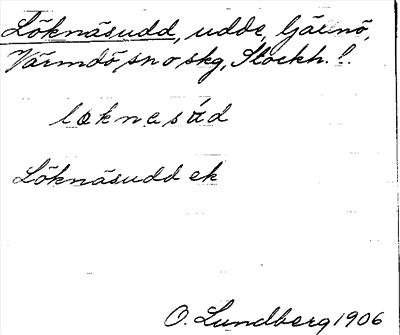 Löknäsudd, udde, Gärnö,
Värmdö sn o skg, Stockh. l.
loknesúd
Löknäsudd ek
O. Lundberg 1906